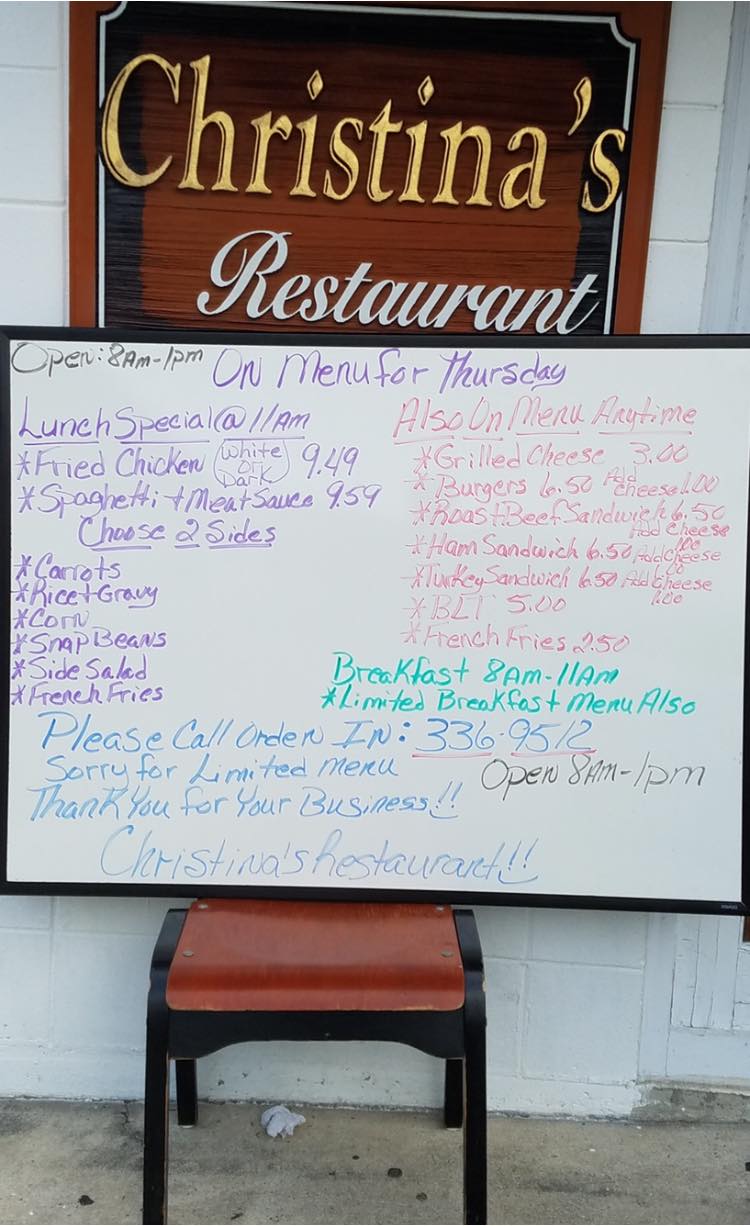 Christina's
Restaurant
Open: 8AM-1pm
On Menu for Thursday
Lunch Special @ 11AM
*Fried Chicken (White or Dark) 9.49
*Spaghetti + Meat Sauce 9.59
Choose 2 Sides
*Carrots
*Rice + Gravy
*Corn
*Snap Beans
*Side Salad
*French Fries
Also On Menu Anytime
*Grilled Cheese 3.00
*Burgers 6.50 Add cheese 1.00
*Roast Beef Sandwich 6.50 Add Cheese 1.00
*Ham Sandwich 6.50 Add Cheese 1.00
*Turkey Sandwich 6.50 Add Cheese 1.00
*BLT 5.00
*French Fries 2.50
Breakfast 8AM-11AM
*Limited Breakfast Menu Also
Please Call Order In: 336-9512
Sorry for Limited menu
Open 8AM-1pm
Thank You for Your Business!!
Christina's Restaurant!!